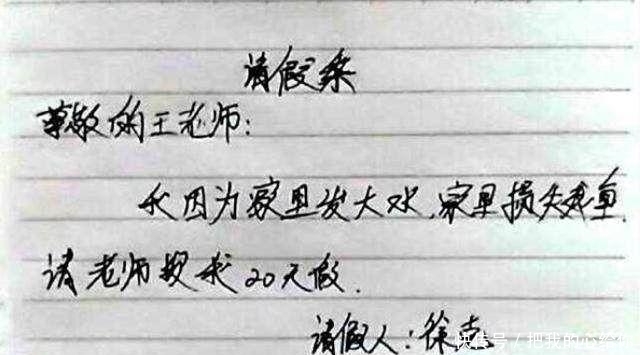 请假条
尊敬的王老师:
我因为家里发大水,家里损失惨重,
请老师授我20天假.
请假人:徐志
快传号 / 把我的心